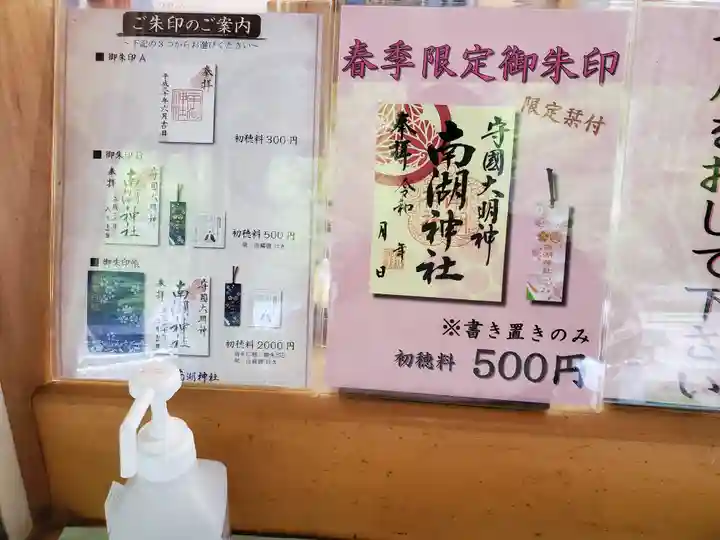 ご朱印のご案内
～下記の3つからお選びください～
■ 御朱印A
奉拝
初穂料 300円
■ 御朱印B
奉拝
守國大明神
南湖神社
初穂料 500円
■ 御朱印帳
奉拝
守國大明神
南湖神社
初穂料 2000円
南湖神社
春季限定御朱印
限定栞付
守國大明神
南湖神社
奉拝 令和 年 月 日
※書き置きのみ
初穂料 500円